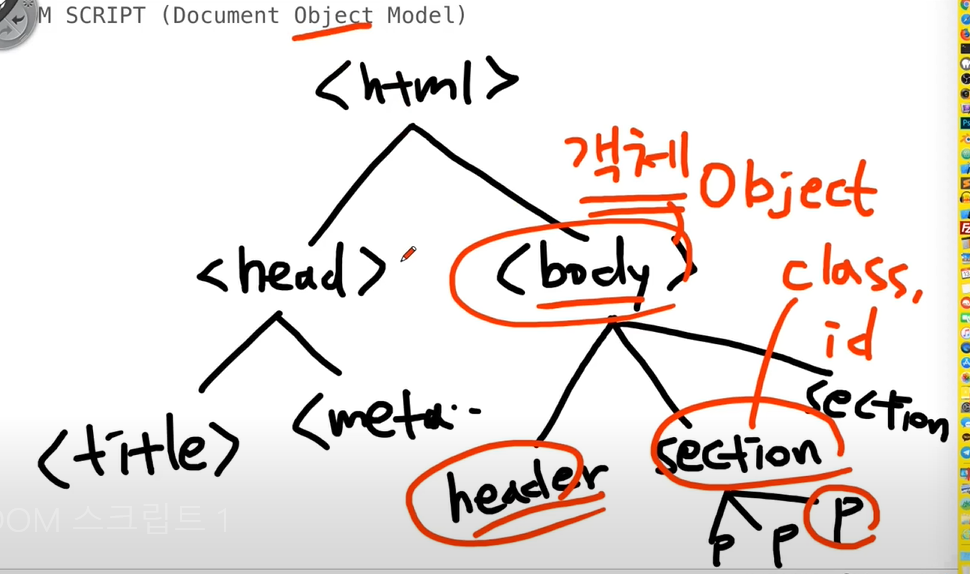 M SCRIPT (Document Object Model)
<html>
객체 Object
<head> <body>
class,
id
<title> <meta... header section section
p p p
DOM 스크립트 1